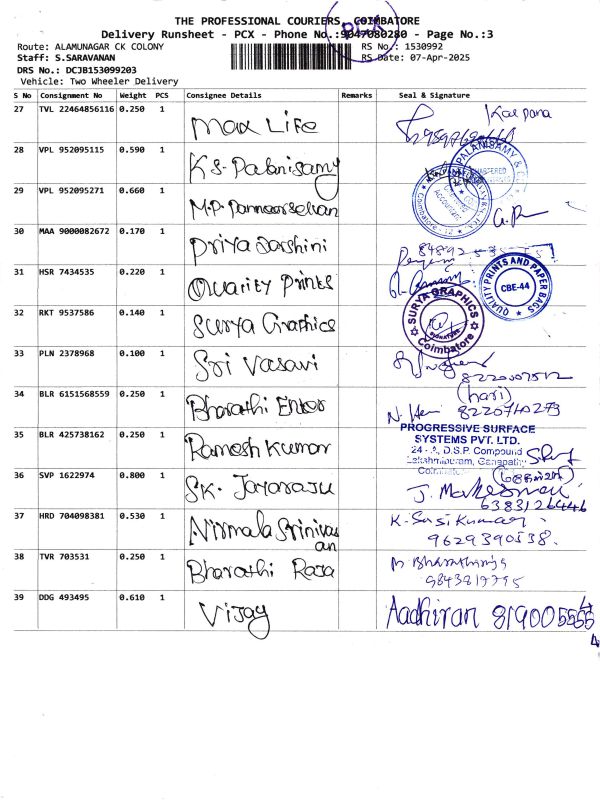 THE PROFESSIONAL COURIERS, COIMBATORE
Delivery Runsheet - PCX - Phone No.:9047080280 - Page No.:3
PCX
Route: ALAMUNAGAR CK COLONY
RS No : 1530992
Staff: S.SARAVANAN
RS Date: 07-Apr-2025
DRS No.: DCJB153099203
Vehicle: Two Wheeler Delivery
S No Consignment No Weight PCS Consignee Details Remarks Seal & Signature
27 TVL 22464856116 0.250 1 Max Life Kalpana
28 VPL 952095115 0.590 1 K.S. Palanisamy
PALANISAMY & CO
29 VPL 952095271 0.660 1 M.P. Ponnoorselvan
30 MAA 9000082672 0.170 1 Priya Darshini
31 HSR 7434535 0.220 1 Quality Prints
QUALITY PRINTS AND PAPER BAGS
CBE-44
32 RKT 9537586 0.140 1 Surya Graphics
SURYA GRAPHICS
SIGNATURE
Coimbatore
33 PLN 2378968 0.100 1 Sri Vasavi
34 BLR 6151568559 0.250 1 Bharathi Enter
(hari)
8220740273
35 BLR 425738162 0.250 1 Ramesh Kumar
PROGRESSIVE SURFACE
SYSTEMS PVT. LTD.
D.S.P. Compound
Lakshmipuram, Ganapathy
36 SVP 1622974 0.800 1 S.K. Jayaraju
6383126446
37 HRD 704098381 0.530 1 Nirmala Srinivas
an
K. Sasi Kumar
9629390538.
38 TVR 703531 0.250 1 Bharathi Raja
39 DDG 493495 0.610 1 Vijay Aadhiran